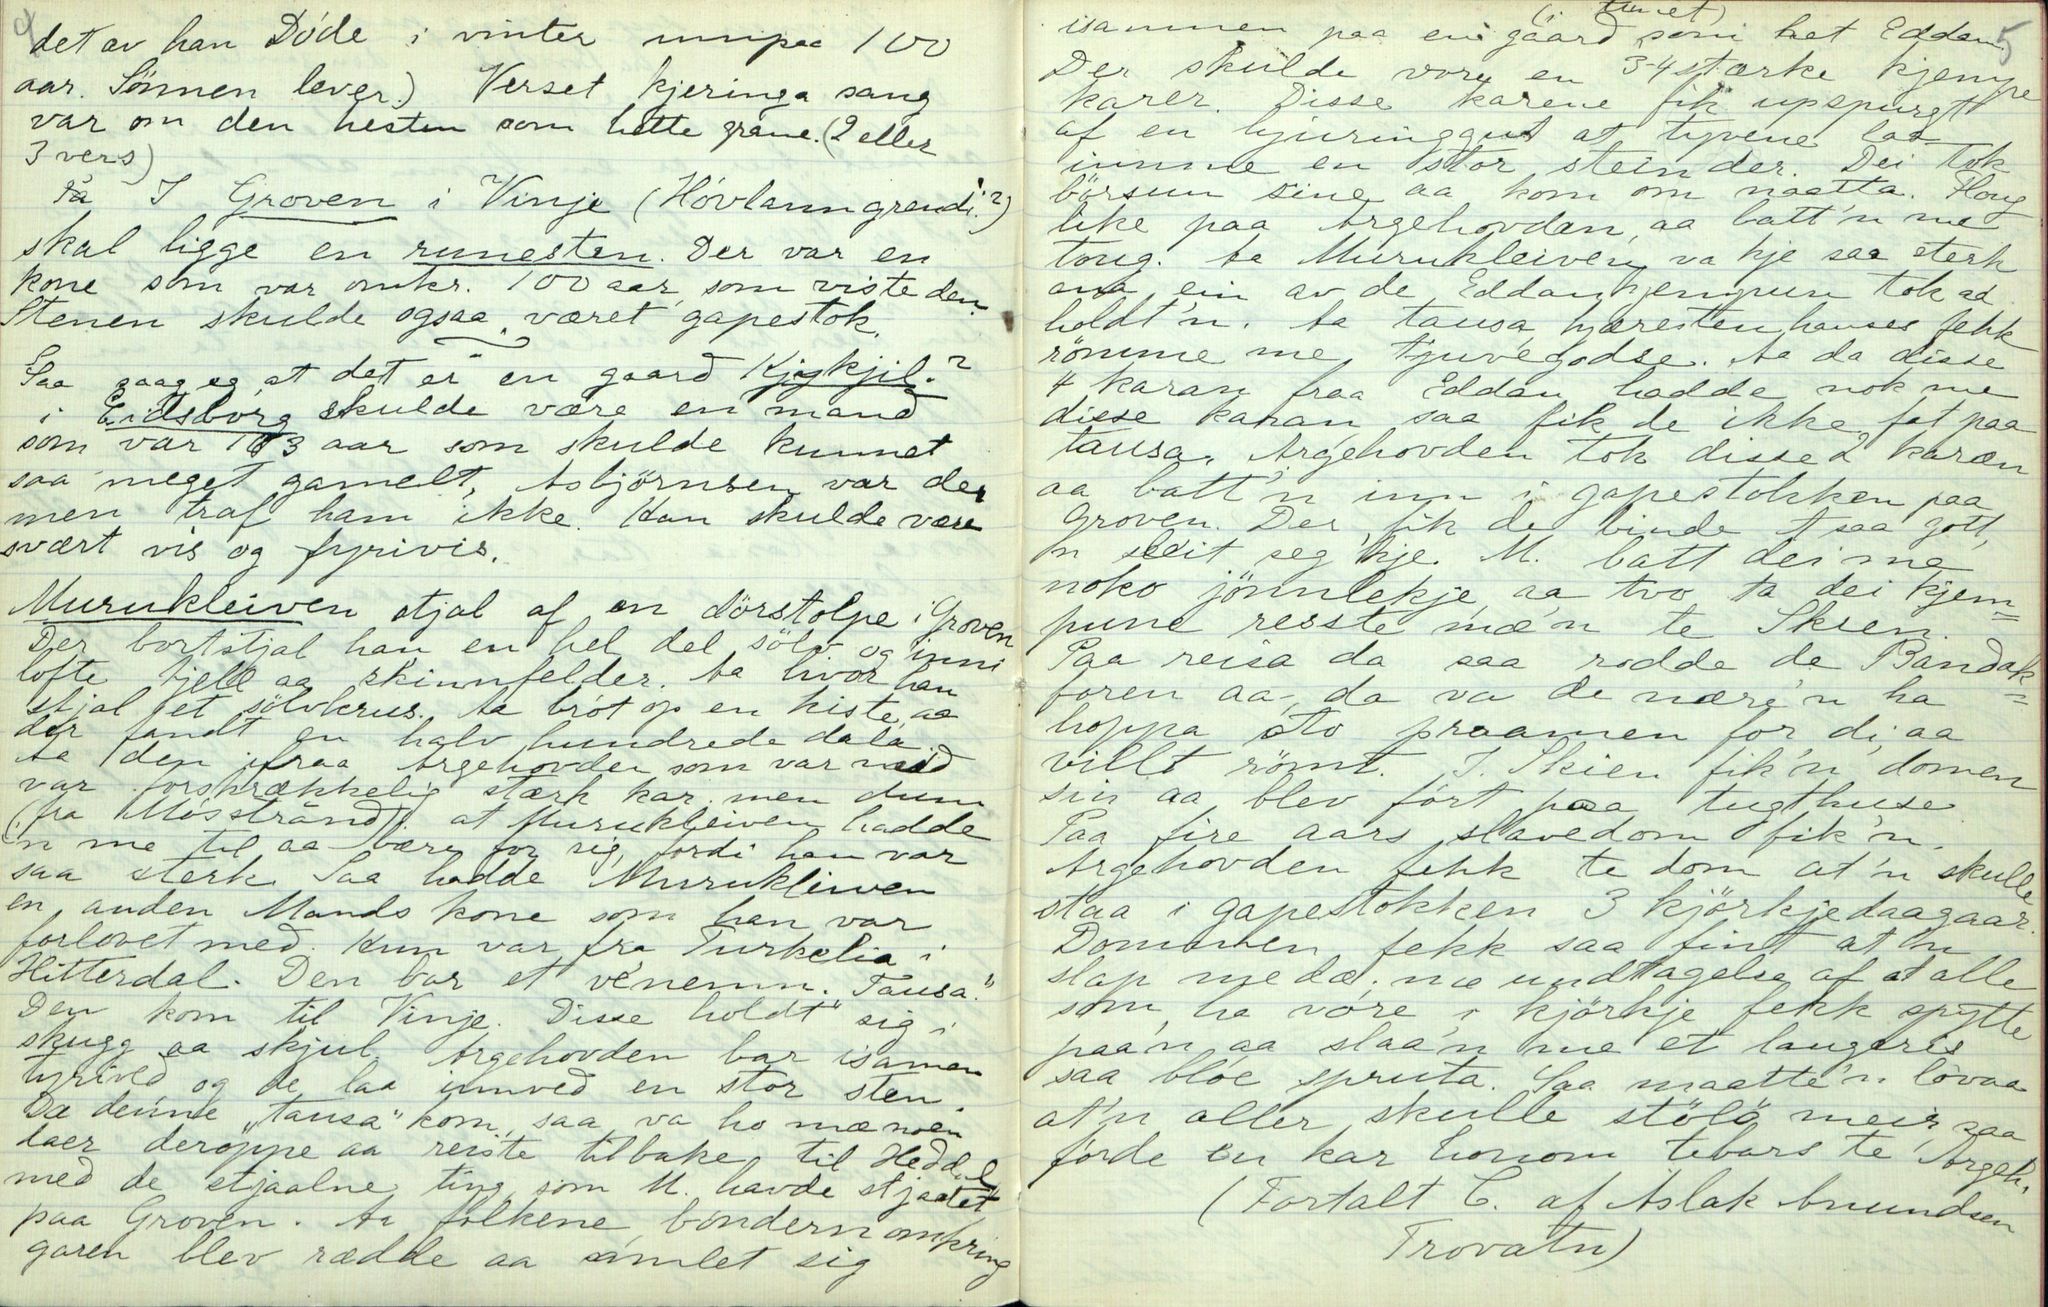 4
det av han Döde i vinterunnpaa 100
aar. Sönnen lever.) Verset kjeringa sang
var om den hesten som hette grane. (2 eller
3 vers)
På I Groven i Vinje (Hóvlanngrendi?)
skal ligge en runesten. Der var en
kone som var omkr. 100 aar som viste den.
Stenen skulde ogsaa været gapestok.
Saa saag eg at det er en gaard Kjykjil?
i Eidsborg skulde være en mand
som var 103 aar som skulde kunnet
saa meget gamelt, Asbjörnsen var der
men traf ham ikke. Han skulde være
svært vis og fyrivis.
Murukleiven stjal af en dörstolpe i Groven
Der bortstjal han en hel del sölv og inni
lofte fjell aa skinnfelder. Aa hvor han
stjal et sölvkrus. Aa bröt op en kiste, aa
der fandt en halv hundrede dala.
Aa den ifraa Argehovden som var med
var forskrækkelig stærk kar, men dum
(fra Mósstrand). at Murukleiven hadde
'n me til aa bære for sig, fordi han var
saa sterk. Saa hadde Murukleiven
en anden Mands kone som han var
forlovet med. Hun var fra Turkelia i
Hitterdal. Den bar et vénemn. "Tausa."
Den kom til Vinje. Disse holdt sig i
skugg aa skjul. Argehovden bar isamen
tyrived og de laa innved en stor sten.
Da denne "tausa" kom, saa va ho mæ noen
daer deroppe aa reiste tilbake til Heddal
med de stjaalne ting som M. havde stjaalet
paa Groven. Aa folkene, böndern omkring
garen blev rædde aa samlet sig
5
isammen paa eni gaard (i tunet) som het Eddan.
Der skulde vore en 3-4 stærke kjempe
karer. Disse karene fik upspurgt
af en hjuringgut at tyvene laa
innme en stor stein der. Dei tok
börsun sine aa kom om naatta. Flaug
like paa Argehovdan, aa batt'n me
toug. Aa Murukleiven va kje saa sterk
ein av de Eddankjempun tok ad
holdt'n. Aa tausa, kjæresten hanses fekk
römme me tjuvegodse. Aa da disse
4 karan fraa Eddan hadde nok me
disse karan saa fik de ikke fat paa
tausa. Argehovden tok disse 2 karæn
aa batt'n inn i gapestokken paa
Groven. Der fik de binde 't saa gott,
'n sleit seg kje. M. batt dei me
noko jönnlekje, aa tvo ta dei kjem=
pune resste mæ'n te Skien.
Paa reisa da saa rodde de Bandak=
foren aa, da va de nære 'n ha
hoppa sto praamen for di, aa
villt römt. I Skien fik'n domen
sin aa blev fört paa tugthuse
Paa fire aars slavedom fik'n.
Argehovden fekk te dom at'n skulle
staa i gapestokken 3 kjörkjedaagaar.
Dommen fekk saa fint at'n
slap me dæ, mæ undtagelse af at alle
som ha vóre i kjörkje fekk spytte
paa'n aa slaa'n me et laugeris
saa bloe spruta. Saa maatte'n lovaa
at'n aller skulle stölö meir, saa
förde en kar honom tebars te Argeh.
(Fortalt C. af Aslak Amundsen
Trovatn)